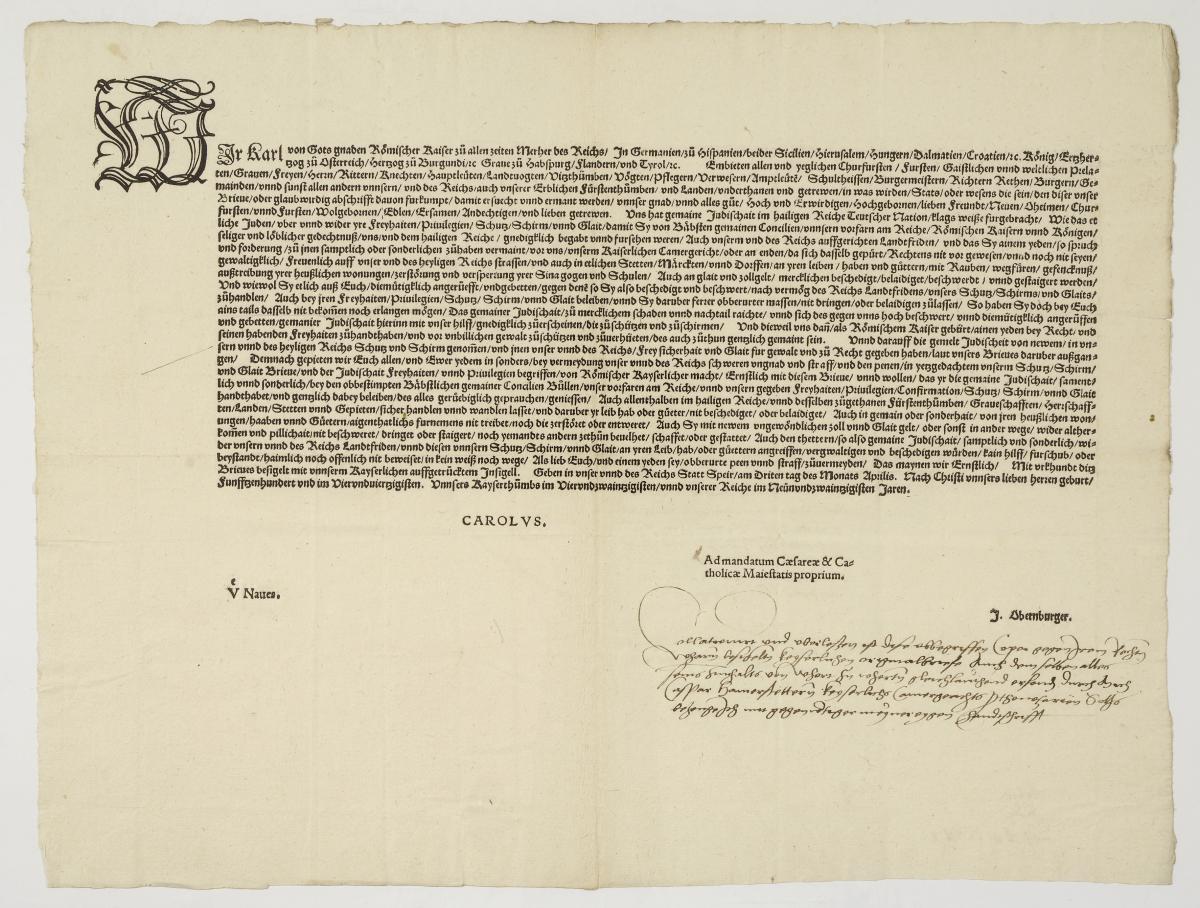 WIr Karl von Gots gnaden Römischer Kaiser zů allen zeiten Merher des Reichs/ In Germanien/zů Hispanien/beider Sicilien/Hierusalem/Hungern/Dalmatien/Croatien/⁊c. König/Ertzher-
tzog zů Osterreich/Hertzog zů Burgundi/⁊c Graue zů Habspurg/Flandern/vnd Tyrol/⁊c. Embieten allen vnd yeglichen Churfürsten/ Fursten/ Gaistlichen vnnd weltlichen Prela-
ten/Grauen/Freyen/Herrn/Rittern/Knechten/Hauptleüten/Landtuogten/Vitzthümben/Vögten/Pflegern/Verwesern/Amptleütē/ Schultheissen/Burgermeistern/Richtern Rethen/Burgern/Ge-
mainden/vnnd sunst allen andern vnnsern/vnd des Reichs/auch vnserer Erblichen Fürstenthümben/vnd Landen/vnderthanen vnd getrewen/in was wirden/Stats/oder wesens die sein/den diser vnser
Brieue/oder glaubwirdig abschrifft dauon furkumpt/damit ersuecht vnnd ermant werden/vnnser gnad/vnnd alles gůt/ Hoch vnd Erwirdigen/Hochgebornen/lieben Freundt/Neuen/Oheimen/Chur-
fursten/vnnd Fursten/Wolgebornen/Edlen/Ersamen/Andechtigen/vnd lieben getrewen. Vns hat gemaine Judischait im hailigen Reiche Teutscher Nation/klags weiße furgebracht/ Wie das et
liche Juden/vber vnnd wider yre Freyhaiten/Priuilegien/Schutz/Schirm/vnnd Glait/damit Sy von Bäbsten gemainen Concilien/vnnsern vorfarn am Reiche/Römischen Kaisern vnnd Königen/
seliger vnd löblicher gedechtnuß/vns/vnd dem hailigen Reiche/ gnedigklich begabt vnnd fursehen weren/ Auch vnserm vnd des Reichs auffgerichten Landtfriden/ vnd das Sy ainem yeden/so spruch
vnd forderung/zů jnen samptlich oder sonderlichen zůhaben vermaint/vor vns/vnserm Kaiserlichen Camergericht/oder an enden/da sich dasselb gepürt/Rechtens nit vor gewesen/vnnd noch nit seyen/
gewaltigklich/ Freuenlich auff vnser vnd des heyligen Reichs strassen/vnd auch in etlichen Stetten/ Märckten/vnnd Dorffen/an yren leiben/ haben vnd güttern/mit Rauben/ wegfüren/gefencknuß/
außtreibung yrer heußlichen wonungen/zerstörung vnd versperung yrer Sinagogen vnd Schulen/ Auch an glait vnd zollgelt/ mercklichen beschedigt/belaidiget/beschwerdt/ vnnd gestaigert werden/
Vnd wiewol Sy etlich auß Euch/diemütigklich angerüefft/vndgebetten/gegen denē so Sy also beschedigt vnd beschwert/nach vermög des Reichs Landtfridens/vnsers Schutz/Schirms/vnd Glaits/
zůhandlen/ Auch bey jren Freyhaiten/Priuilegien/Schutz/ Schirm/vnnd Glait beleiben/vnnd Sy daruber ferrer obberurter massen/nit dringen/oder belaidigen zůlassen/ So haben Sy doch bey Euch
ains tails dasselb nit bekomen noch erlangen mögen/ Das gemainer Judischait/zů mercklichem schaden vnnd nachtail raichte/ vnnd sich des gegen vnns hoch beschwert/ vnnd diemütigklich angerüffen
vnd gebetten/gemanier Judischait hierinn mit vnser hilff/gnedigklich zůerscheinen/die zůschützen vnd zůschirmen/ Vnd dieweil vns dañ/als Römischem Kaiser gebürt/ainen yeden bey Recht/vnd
seinen habenden Freyhaiten zůhandthaben/vnd vor vnbillichen gewalt zůschützen vnd zůuerhüeten/des auch zůthun gentzlich gemaint sein. Vnnd darauff die gemelt Judischeit von newem/in vn-
sern vnnd des heyligen Reichs Schutz vnd Schirm genom̃en/vnd jnen vnser vnnd des Reichs/Frey sicherhait vnd Glait fur gewalt vnd zů Recht gegeben haben/laut vnsers Brieues daruber außgan-
gen/ Demnach gepieten wir Euch allen/vnd Ewer yedem in sonders/bey vermeydung vnser vnnd des Reichs schweren vngnad vnd straff/vnd den penen/in yetzgedachtem vnserm Schutz/Schirm/
vnd Glait Brieue/vnd der Judischait Freyhaiten/vnnd Priuilegien begriffen/von Römischer Kayserlicher macht/Ernstlich mit diesem Brieue/vnnd wollen/das yr die gemaine Judischait/sament-
lich vnnd sonderlich/bey den obbestimpten Bäbstlichen gemainer Concilien Büllen/vnser vorfaren am Reiche/vnnd vnsern gegeben Freyhaiten/Priuilegien/Confirmation/Schutz/Schirm/vnnd Glait
handthabet/vnd gentzlich dabey beleiben/des alles gerüebiglich geprauchen/geniessen/ Auch allenthalben im hailigen Reiche/vnnd desselben zůgethanen Fürstenthümben/Graueschafften/Herrschaff-
ten/Landen/Stetten vnnd Gepieten/sicher handlen vnnd wandlen lasset/vnd daruber yr leib hab oder güeter/nit beschediget/oder belaidiget/ Auch in gemain oder sonderhait/von jren heußlichen won-
ungen/haaben vnnd Güetern/aigenthatlichs furnemens nit treibet/noch die zerstöret oder entweret/ Auch Sy mit newem vngewöndlichen zoll vnnd Glait gelt/ oder sonst in ander wege/wider alther-
kom̃en vnd pillichait/nit beschweret/ dringet oder staigert/noch yemandes andern zethůn beuelhet/schaffet/oder gestattet/ Auch den thettern/so also gemaine Judischait/samptlich vnd sonderlich/wi-
der vnsern vnnd des Reichs Landtfriden/vnnd diesen vnnsern Schutz/vnnd Glait/an yren Leib/hab/oder güettern angreiffen/vergwaltigen vnd beschedigen würden/kain hilff/furschub/oder
beystandt/haimlich noch offenlich nit beweiset/in kein weiß noch wege/ Als lieb Euch/vnd einem yeden sey/obberurte peen vnnd straff/zůuermeyden/ Das maynen wir Ernstlich/ Mit vrkhundt ditz
Brieues besigelt mit vnnserm Kayserlichen auffgetrücktem Insigell. Geben in vnser vnnd des Reichs Statt Speir/am Driten tag des Monats Aprilis. Nach Christi vnnsers lieben herren geburt/
Funfftzenhundert vnd im Viervnduiertzigisten. Vnnsers Kayserthümbs im Viervndzwaintzigisten/vnnd vnserer Reiche im Neünvndzwaintzigisten Jaren.
CAROLVS.
Ad mandatum Cæsareæ & Ca-
tholicæ Maiestatis proprium.
Vͤ Naues.
J. Obernburger.